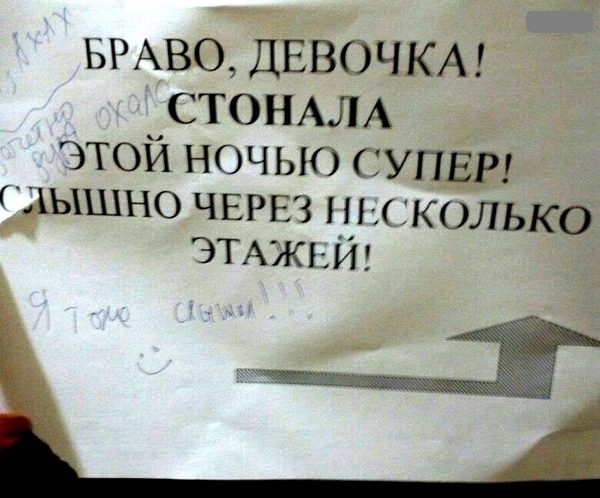 БРАВО, ДЕВОЧКА!
СТОНАЛА
ЭТОЙ НОЧЬЮ СУПЕР!
СЛЫШНО ЧЕРЕЗ НЕСКОЛЬКО
ЭТАЖЕЙ!
Я тоже слышал!!!